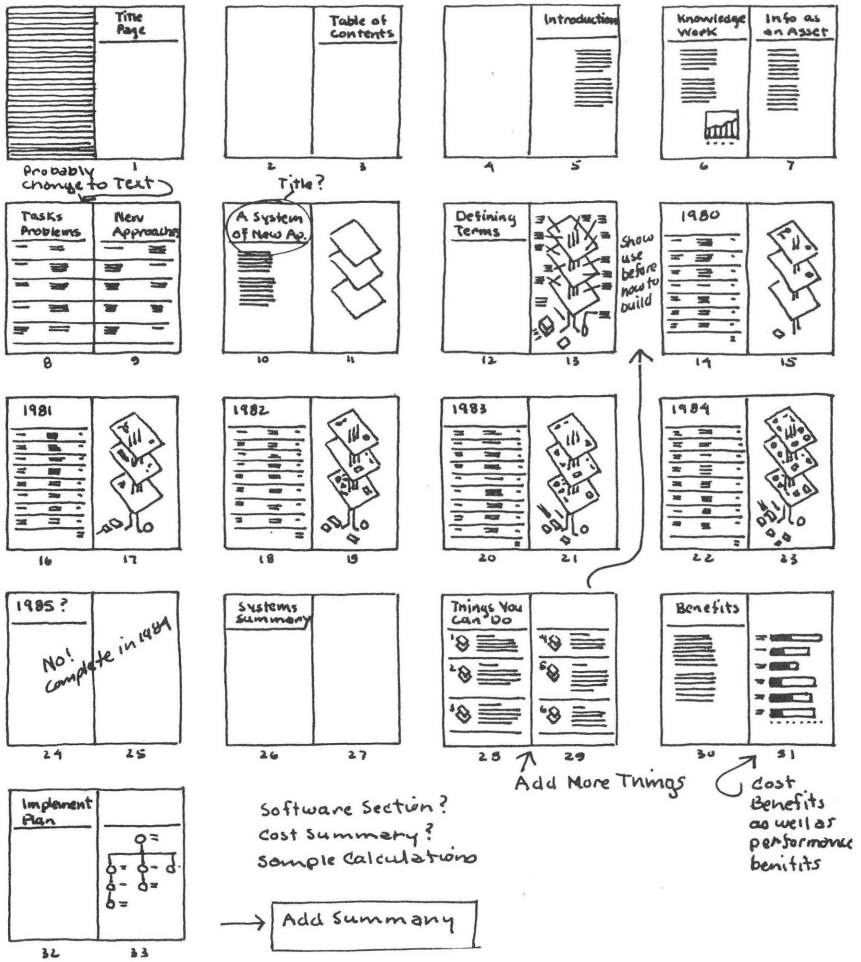 Title
Page
1
Table of
Contents
2
3
Introduction
4
5
Knowledge
Work
Info as
an Asset
6
7
Probably
change to Text
Tasks
Problems
New
Approaches
8
9
Title?
A System
of New Ap.
10
11
Defining
Terms
12
13
Show
use
before
how to
build
1980
14
15
1981
16
17
1982
18
19
1983
20
21
1984
22
23
1985?
No!
complete in 1984
24
25
Systems
Summary
26
27
Things You
Can Do
1
2
3
4
5
6
28
29
Add More Things
Benefits
30
31
Cost
Benefits
as well as
performance
benifits
Implement
Plan
32
33
Software Section?
Cost Summary?
Sample Calculations
Add Summary